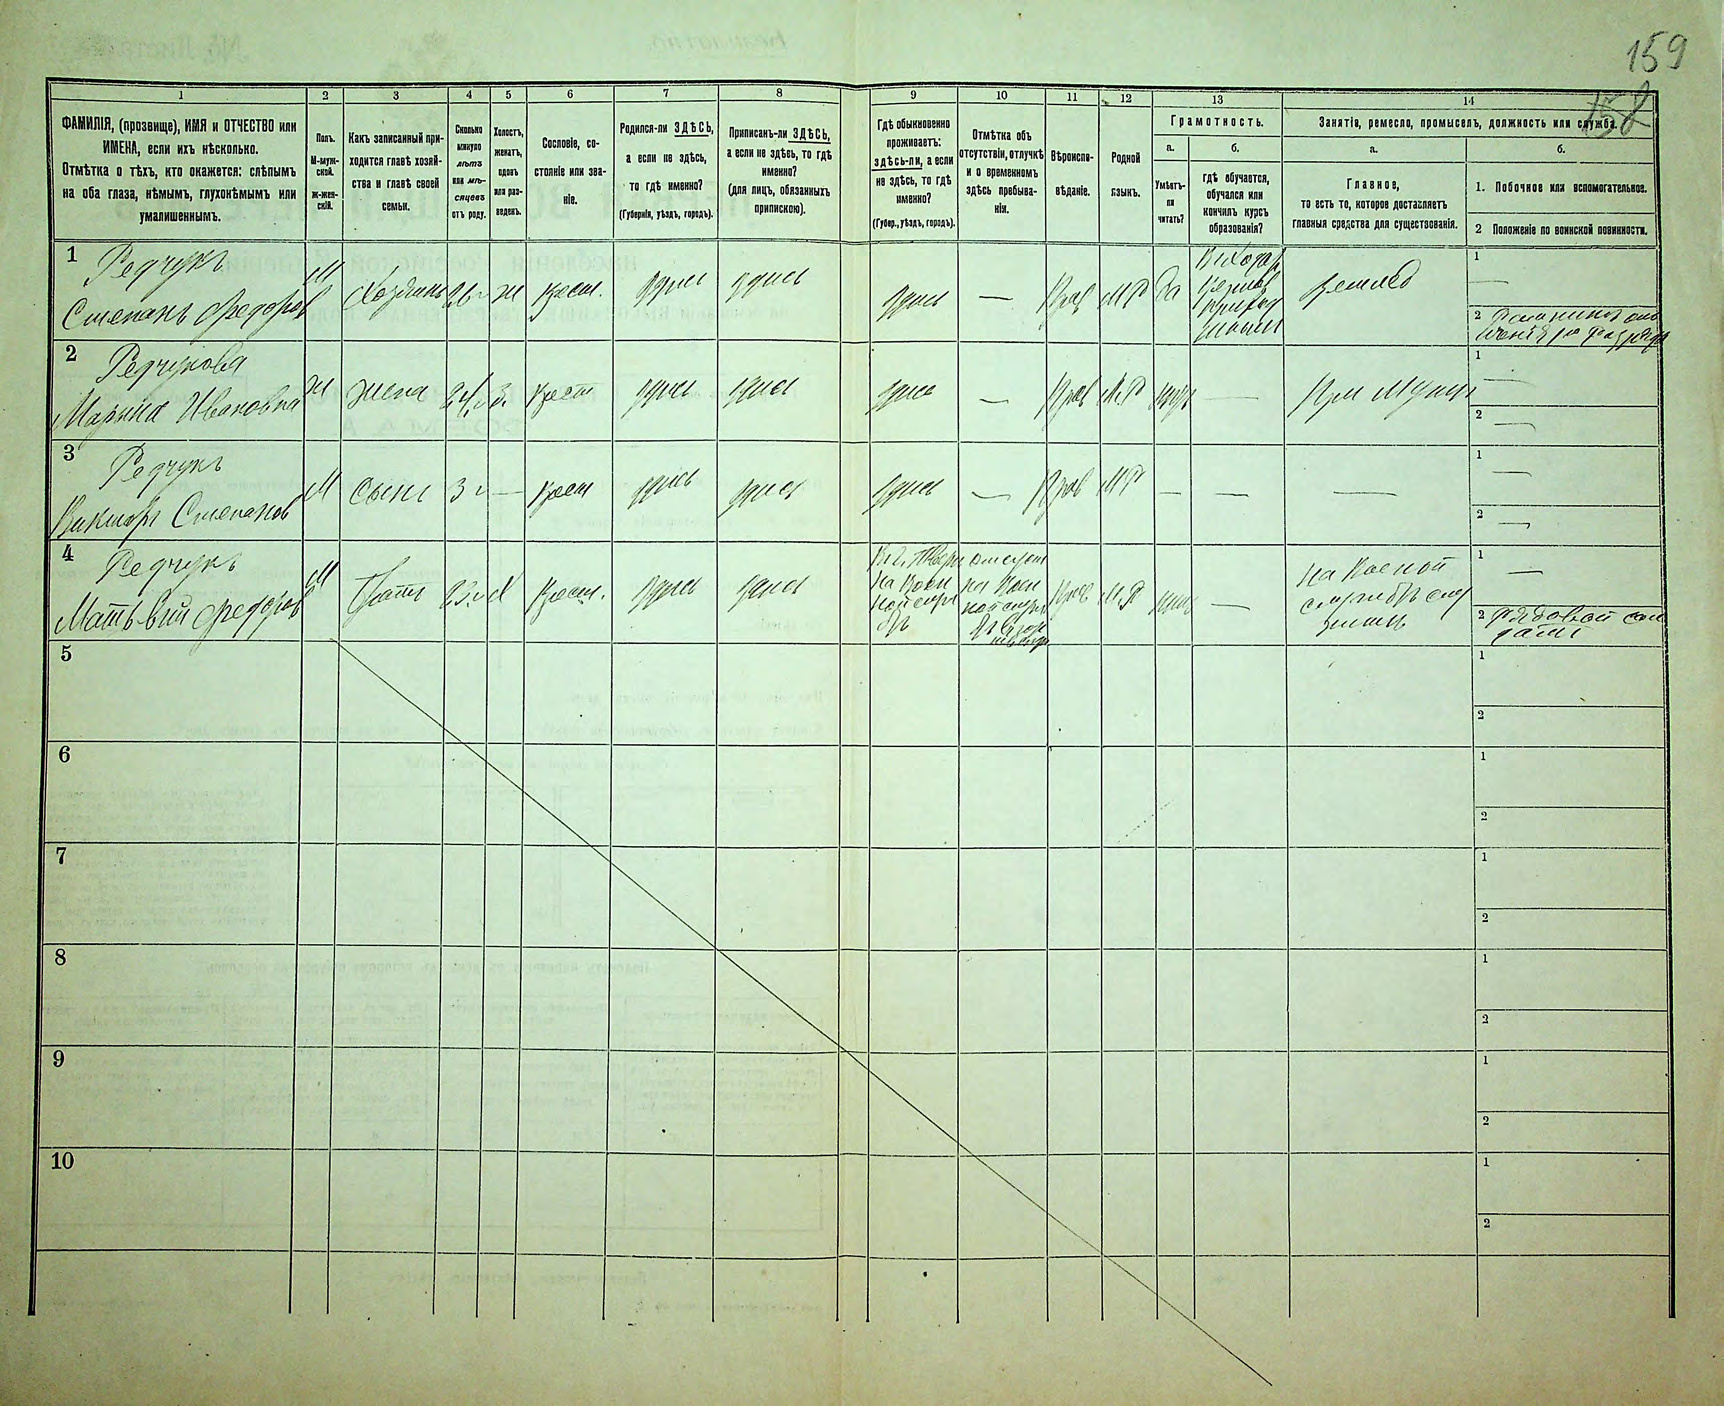 159
158
1 2 3 4 5 6 7 8 9 10 11 12 13 14
ФАМИЛІЯ, (прозвище), ИМЯ и ОТЧЕСТВО или
ИМЕНА, если ихъ нѣсколько.
Отмѣтка о тѣхъ, кто окажется: слѣпымъ
на оба глаза, нѣмымъ, глухонѣмымъ или
умалишеннымъ.
Полъ.
М-муж-
ской.
Ж-жен-
скій.
Какъ записанный при-
ходится главѣ хозяй-
ства и главѣ своей
семьи.
Сколько
минуло
лѣтъ
или мѣ-
сяцевъ
отъ роду.
Холостъ,
женатъ,
вдовъ
или раз-
веденъ.
Сословіе, со-
стояніе или зва-
ніе.
Родился-ли ЗДѢСЬ,
а если не здѣсь,
то гдѣ именно?
(Губернія, уѣздъ, городъ).
Приписанъ-ли ЗДѢСЬ,
а если не здѣсь, то гдѣ
именно?
(для лицъ, обязанныхъ
припискою).
Гдѣ обыкновенно
проживаетъ:
здѣсь-ли, а если
не здѣсь, то гдѣ
именно?
(Губер., уѣздъ, городъ).
Отмѣтка объ
отсутствіи, отлучкѣ
и о временномъ
здѣсь пребыва-
ніи.
Вѣроиспо-
вѣданіе.
Родной
языкъ.
Грамотность.
а.
Умѣетъ-
ли
читать?
б.
Гдѣ обучается,
обучался или
кончилъ курсъ
образованія?
Занятіе, ремесло, промыселъ, должность или служба.
а.
Главное,
то есть то, которое доставляетъ
главныя средства для существованія.
б.
1. Побочное или вспомогательное.
2 Положеніе по воинской повинности.
1 Редчукъ
Степанъ Федоровъ
М Хозяинъ 26 ж крест. здѣсь здѣсь здѣсь — Прав М.Р да
землед
1 —
2
2 Редчукова
Марина Ивановна
Ж жена 24 з. крест здѣсь здѣсь здѣсь — Прав М.Р — При мужѣ
1 —
2 —
3 Редчукъ
Викторъ Степановъ
М сынъ 3 — крест здѣсь здѣсь здѣсь — Прав М.Р — — —
1 —
2 —
4 Редчукъ
Матьвѣй Федоровъ
М братъ 23 Х крест. здѣсь здѣсь
Прав М.Р —
на военой
службѣ
1 —
2 рядовой сол
датъ
5
1
2
6
1
2
7
1
2
8
1
2
9
1
2
10
1
2